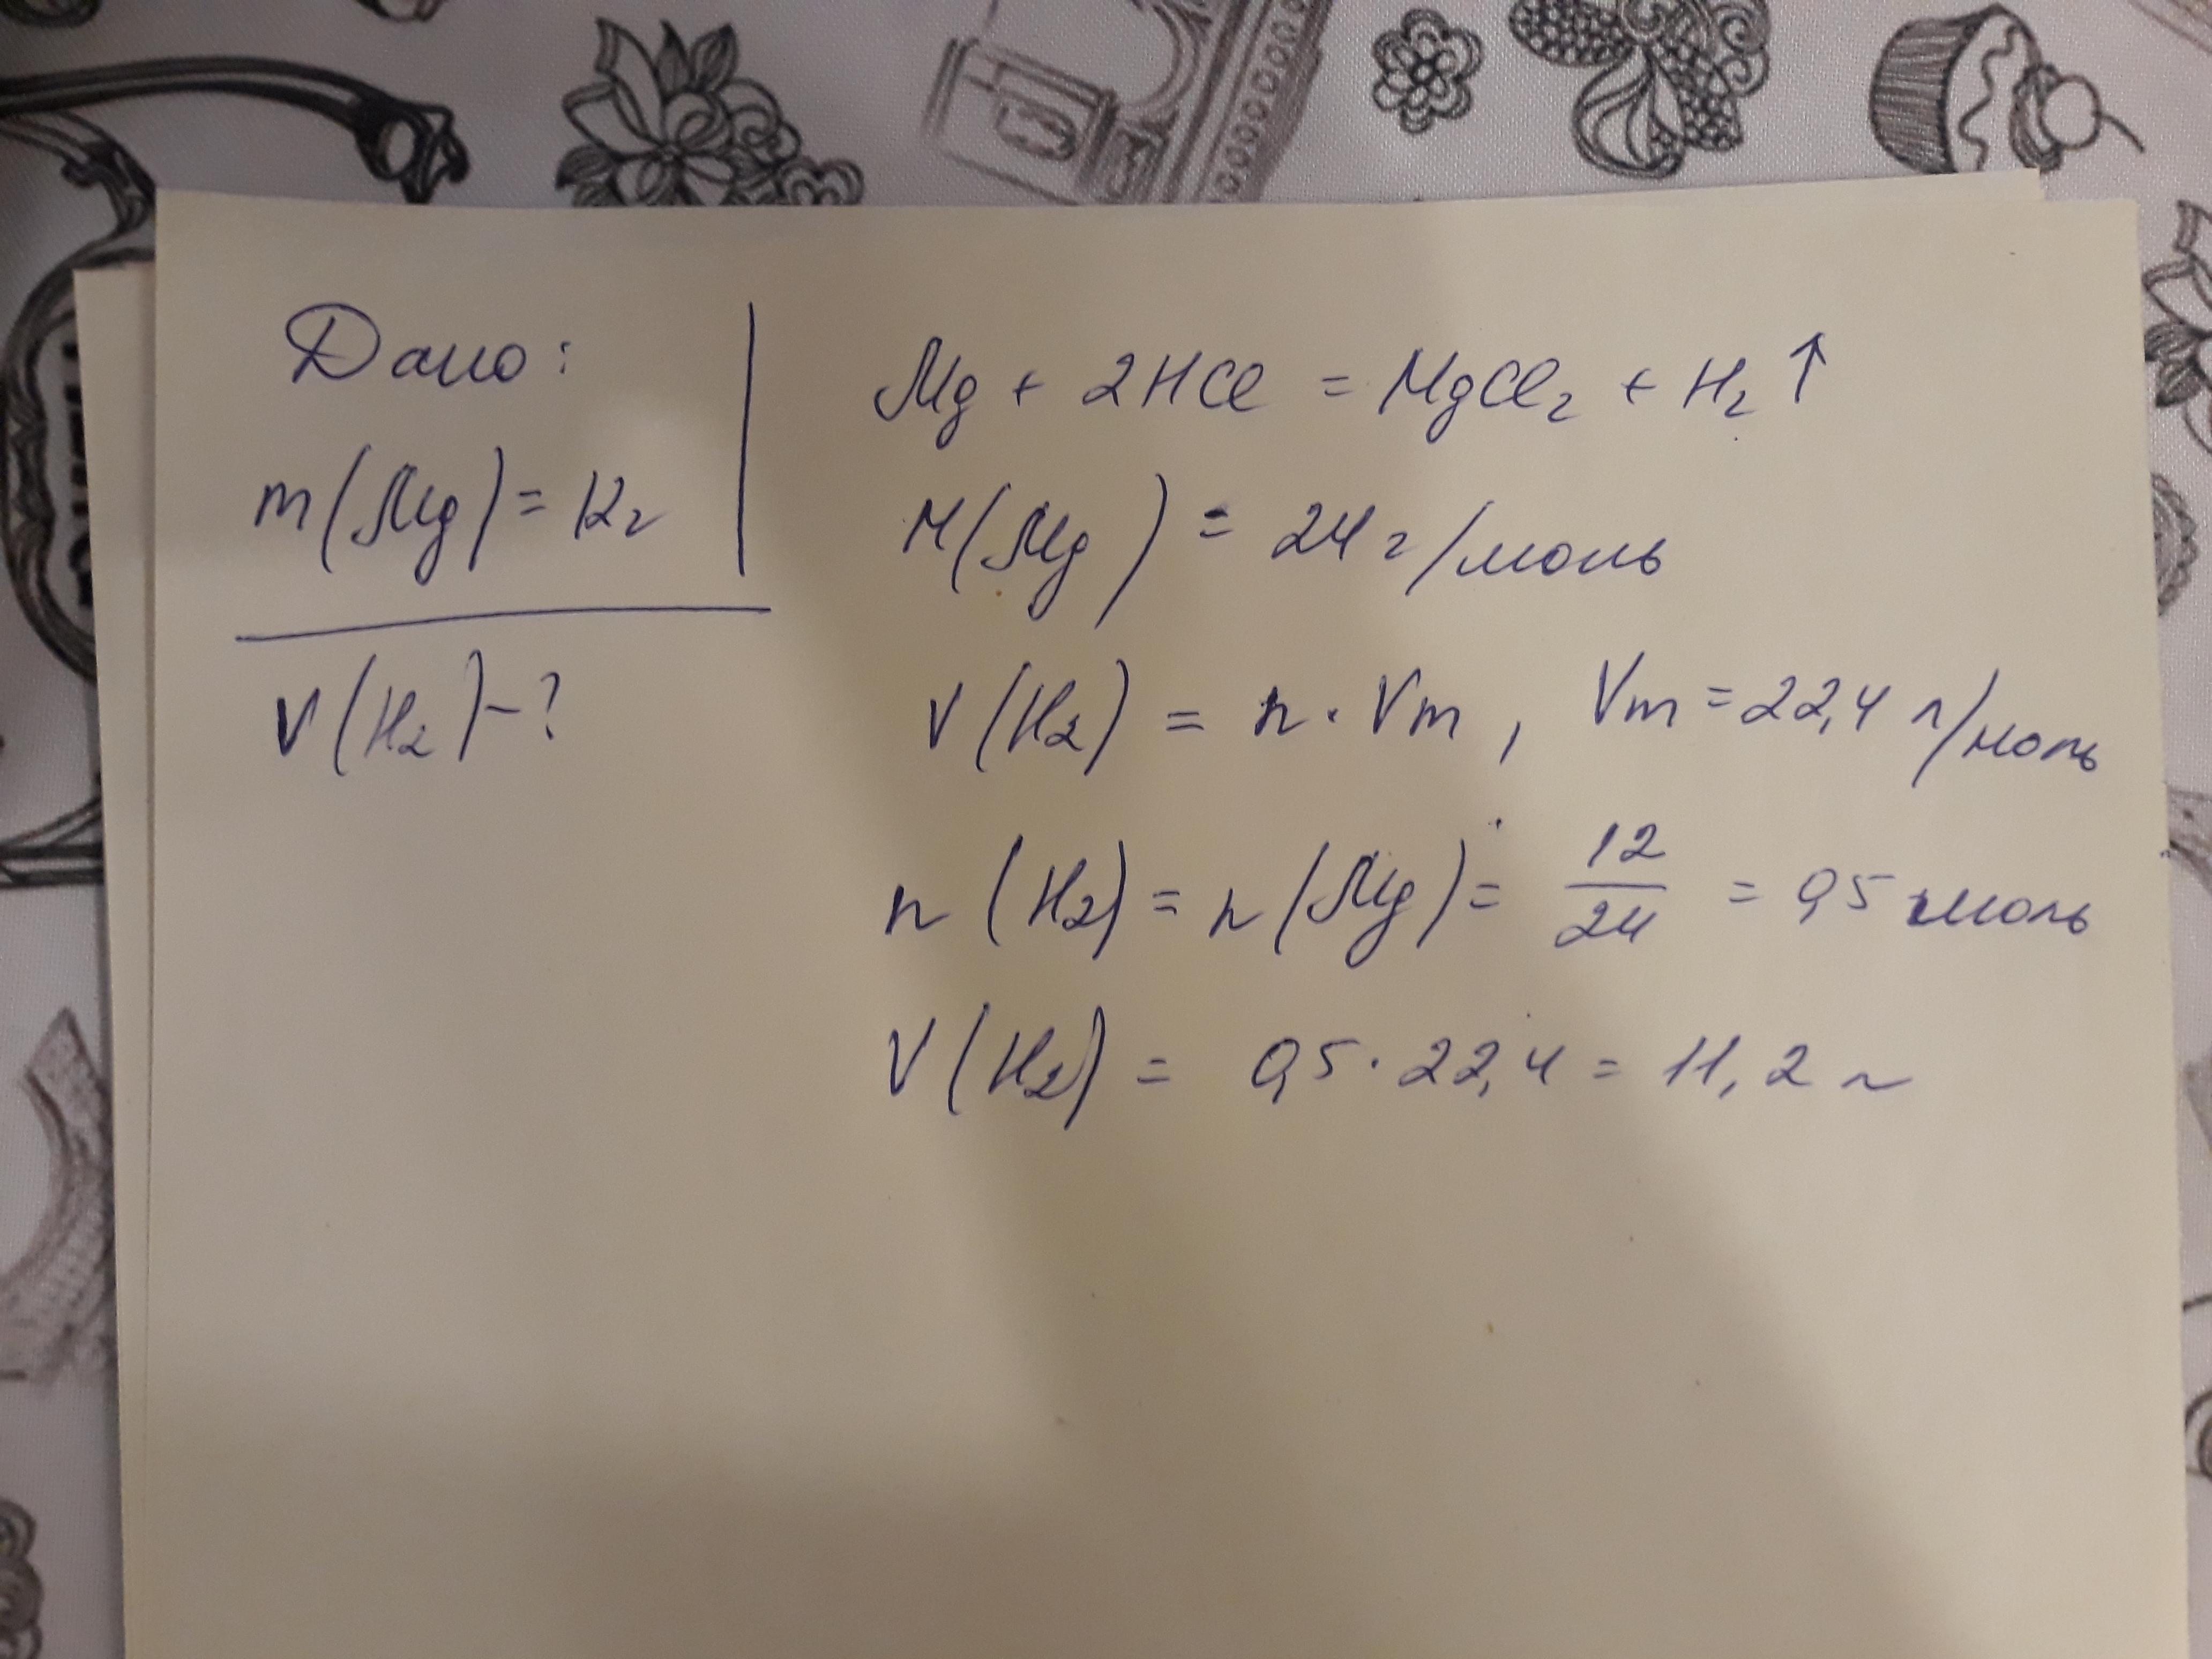 Дано:
m(Mg) = 12г
V(H₂) - ?
Mg + 2HCl = MgCl₂ + H₂ ↑
M(Mg) = 24 г/моль
V(H₂) = n · Vm , Vm = 22,4 л/моль
n (H₂) = n (Mg) = 12/24 = 0,5 моль
V(H₂) = 0,5 · 22,4 = 11,2 л